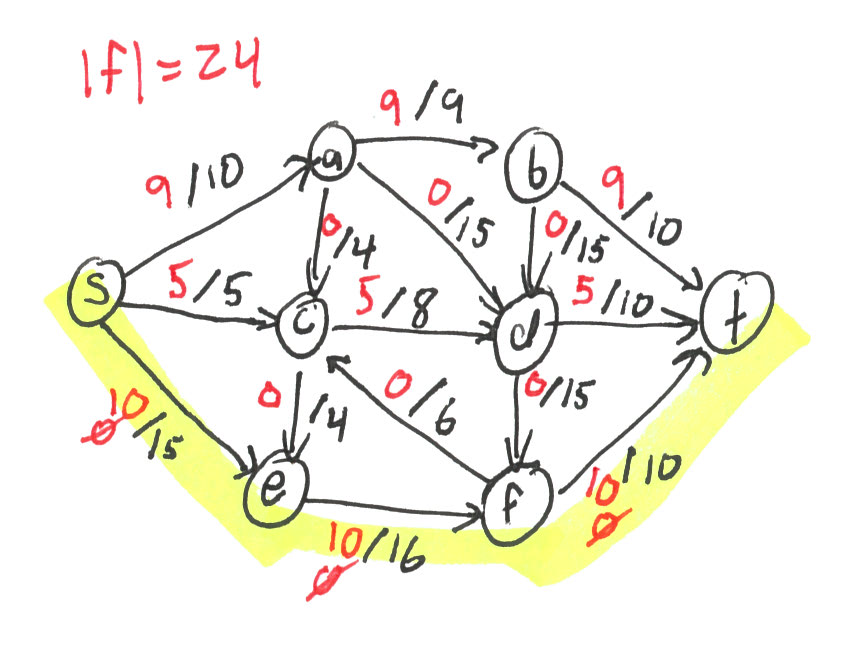 |f|=24
9/9
a
b
9/10
0/15
9/10
0/4
0/15
S
5/5
5/8
5/10
c
d
t
0/6
0/15
10
0/15
0
/4
e
f
10/10
0
10/16
0